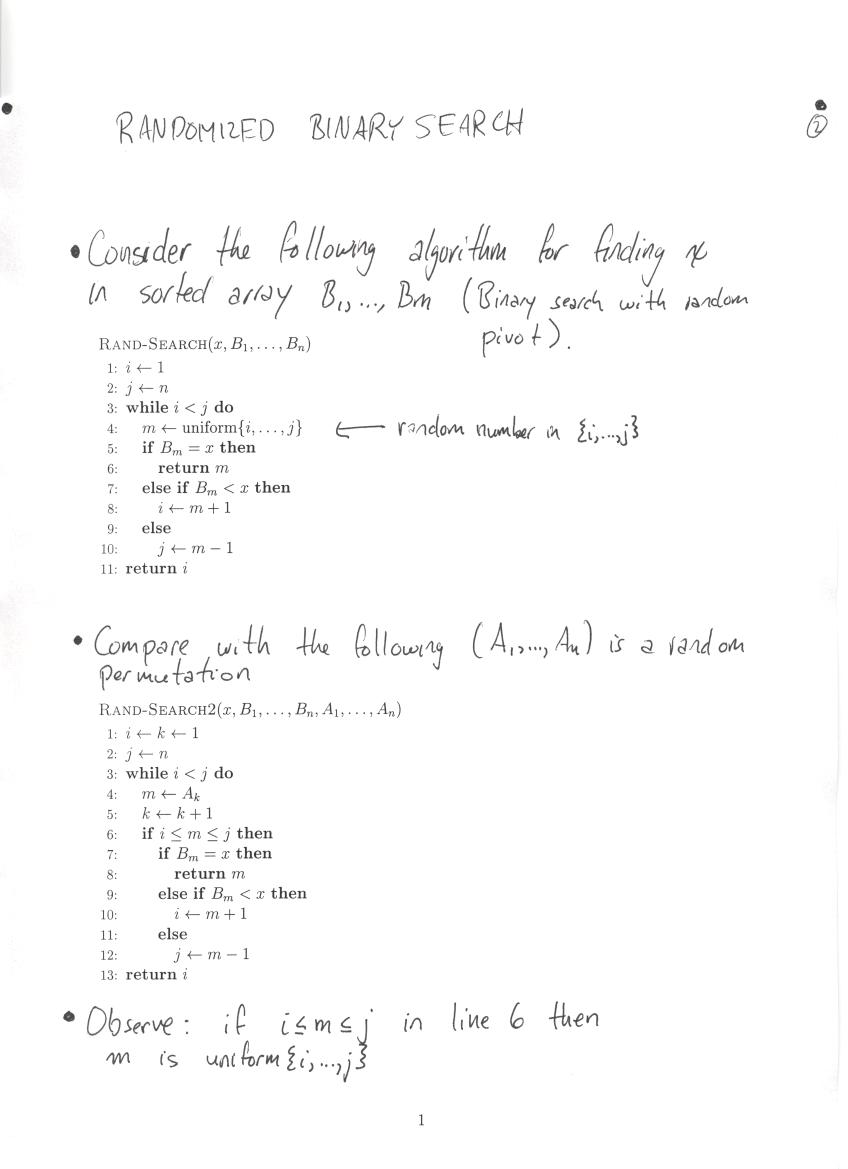 RANDOMIZED BINARY SEARCH
②
• Consider the following algorithm for finding x
in sorted array B₁, ..., Bn (Binary search with random
pivot).
RAND-SEARCH(x, B₁, . . . , Bₙ)
1: i ← 1
2: j ← n
3: while i < j do
4: m ← uniform{i, . . . , j} ← random number in {i, ..., j}
5: if Bₘ = x then
6: return m
7: else if Bₘ < x then
8: i ← m + 1
9: else
10: j ← m − 1
11: return i
• Compare with the following (A₁, ..., An) is a random
permutation
RAND-SEARCH2(x, B₁, . . . , Bₙ, A₁, . . . , Aₙ)
1: i ← k ← 1
2: j ← n
3: while i < j do
4: m ← Aₖ
5: k ← k + 1
6: if i ≤ m ≤ j then
7: if Bₘ = x then
8: return m
9: else if Bₘ < x then
10: i ← m + 1
11: else
12: j ← m − 1
13: return i
• Observe: if i ≤ m ≤ j in line 6 then
m is uniform {i, ..., j}
1